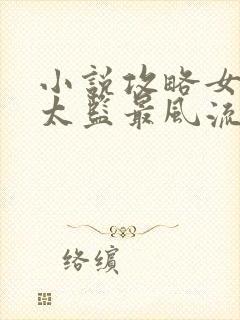 小說攻略女
太監最風流
络缤